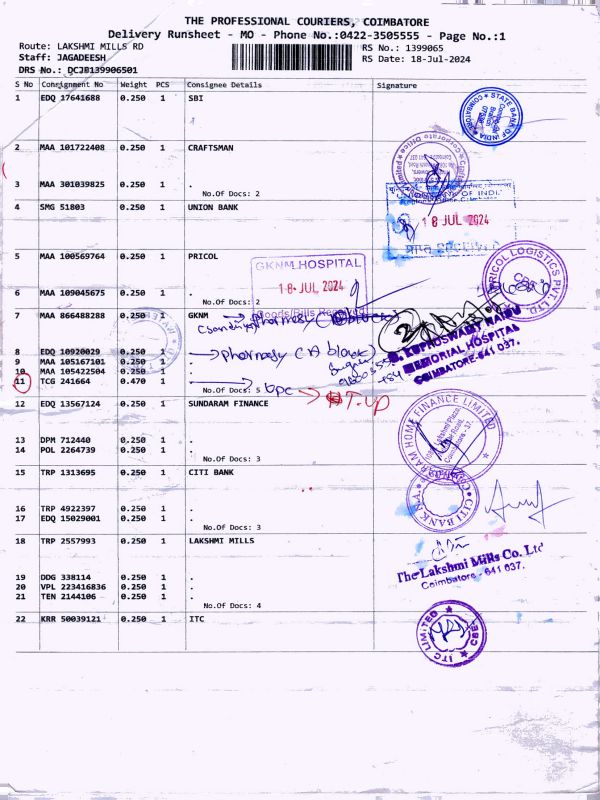 THE PROFESSIONAL COURIERS, COIMBATORE
Delivery Runsheet - MO - Phone No.:0422-3505555 - Page No.:1
Route: LAKSHMI MILLS RD
RS No.: 1399065
Staff: JAGADEESH
RS Date: 18-Jul-2024
DRS No.: DCJB139906501
S No Consignment No Weight PCS Consignee Details Signature
1 EDQ 17641688 0.250 1 SBI
STATE BANK OF INDIA
2 MAA 101722408 0.250 1 CRAFTSMAN
3 MAA 301039825 0.250 1 .
No.Of Docs: 2
4 SMG 51803 0.250 1 UNION BANK
18 JUL 2024
प्राप्त RECEIVED
5 MAA 100569764 0.250 1 PRICOL
PRICOL LOGISTICS PVT. LTD.
GKNM HOSPITAL
18 JUL 2024
Goods/Bills Received
6 MAA 109045675 0.250 1 .
No.Of Docs: 2
7 MAA 866488288 0.250 1 GKNM
pharmacy (
8 EDQ 10920029 0.250 1 pharmacy (A block)
KUPPUSWAMY NAIDU
MEMORIAL HOSPITAL
COIMBATORE-641 037.
9 MAA 105167101 0.250 1 .
10 MAA 105422504 0.250 1 .
11 TCG 241664 0.470 1 .
No.Of Docs: 5
T-UP
12 EDQ 13567124 0.250 1 SUNDARAM FINANCE
SUNDARAM HOME FINANCE LIMITED
Coimbatore - 37.
13 DPM 712440 0.250 1 .
14 POL 2264739 0.250 1 .
No.Of Docs: 3
15 TRP 1313695 0.250 1 CITI BANK
CITI BANK N.A.
16 TRP 4922397 0.250 1 .
17 EDQ 15029001 0.250 1 .
No.Of Docs: 3
18 TRP 2557993 0.250 1 LAKSHMI MILLS
The Lakshmi Mills Co. Ltd
Coimbatore - 641 037.
19 DDG 338114 0.250 1 .
20 VPL 223416836 0.250 1 .
21 TEN 2144106 0.250 1 .
No.Of Docs: 4
22 KRR 50039121 0.250 1 ITC
ITC LIMITED